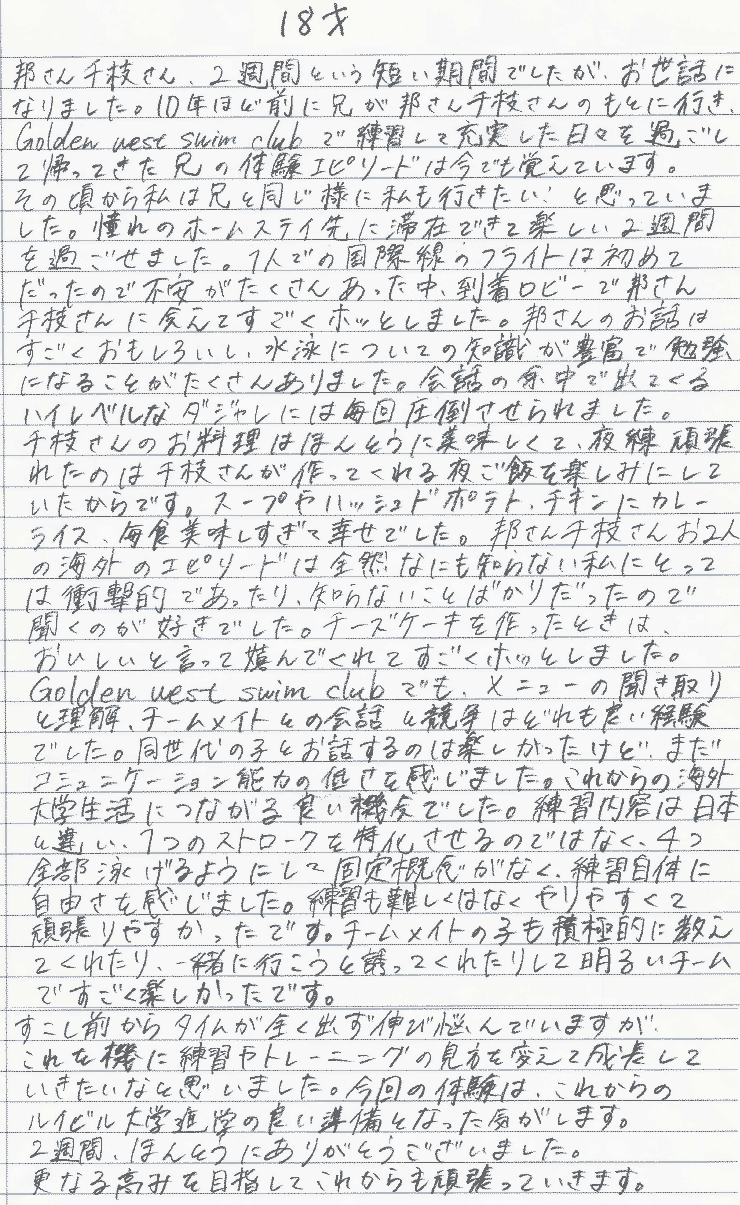 18才
邦さん千枝さん、2週間という短い期間でしたが、お世話に
なりました。10年ほど前に兄が邦さん千枝さんのもとに行き、
Golden west swim club で練習して充実した日々を過ごし
て帰ってきた兄の体験エピソードは今でも覚えています。
その頃から私は兄と同じ様に私も行きたい！と思っていま
した。憧れのホームステイ先に滞在できて楽しい2週間
を過ごせました。1人での国際線のフライトは初めて
だったので不安がたくさんあった中、到着ロビーで邦さん
千枝さんに会えてすごくホッとしました。邦さんのお話は
すごくおもしろいし、水泳についての知識が豊富で勉強
になることがたくさんありました。会話の中で出てくる
ハイレベルなダジャレには毎回圧倒させられました。
千枝さんのお料理はほんとうに美味しくて、夜練頑張
れたのは千枝さんが作ってくれる夜ご飯を楽しみにして
いたからです。スープやハッシュドポテト、チキンにカレー
ライス、毎食美味しすぎて幸せでした。邦さん千枝さんお2人
の海外のエピソードは全然なにも知らない私にとって
は衝撃的であったり、知らないことばかりだったので
聞くのが好きでした。チーズケーキを作ったときは、
おいしいと言って喜んでくれてすごくホッとしました。
Golden west swim club でも、メニューの聞き取り
と理解、チームメイトとの会話と競争はどれも良い経験
でした。同世代の子とお話するのは楽しかったけど、まだ
コミュニケーション能力の低さを感じました。これからの海外
大学生活につながる良い機会でした。練習内容は日本
と違い、1つのストロークを特化させるのではなく、4つ
全部泳げるようにして固定概念がなく、練習自体に
自由さを感じました。練習も難しくはなくやりやすくて
頑張りやすかったです。チームメイトの子も積極的に教え
てくれたり、一緒に行こうと誘ってくれたりして明るいチーム
ですごく楽しかったです。
すこし前からタイムが全く出ず伸び悩んでいますが、
これを機に練習やトレーニングの見方を変えて成長して
いきたいなと思いました。今回の体験は、これからの
ルイビル大学進学の良い準備となった気がします。
2週間、ほんとうにありがとうございました。
更なる高みを目指してこれからも頑張っていきます。